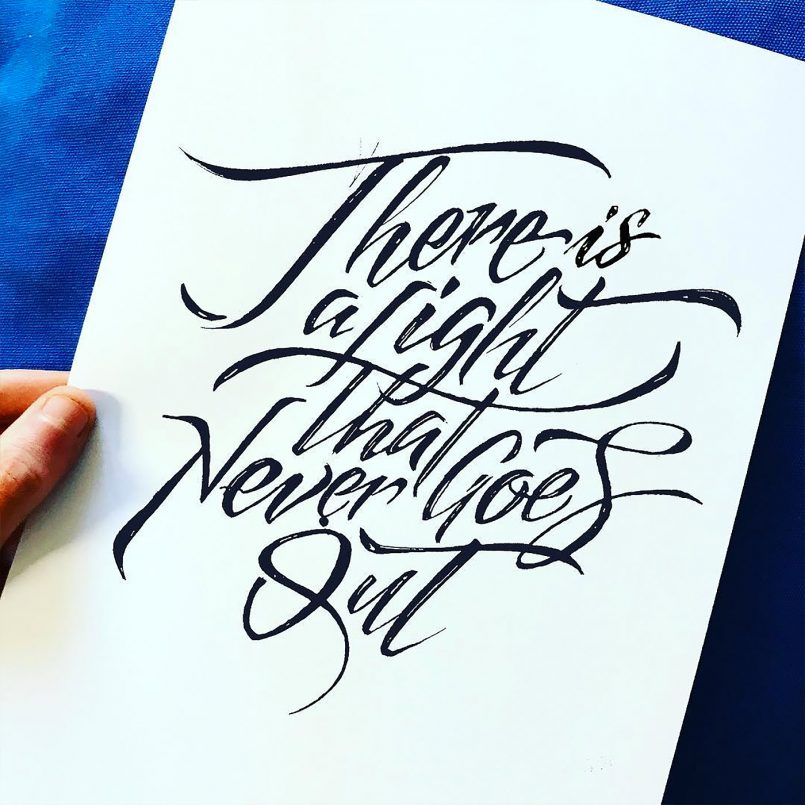 There is
a light
that
Never Goes
Out